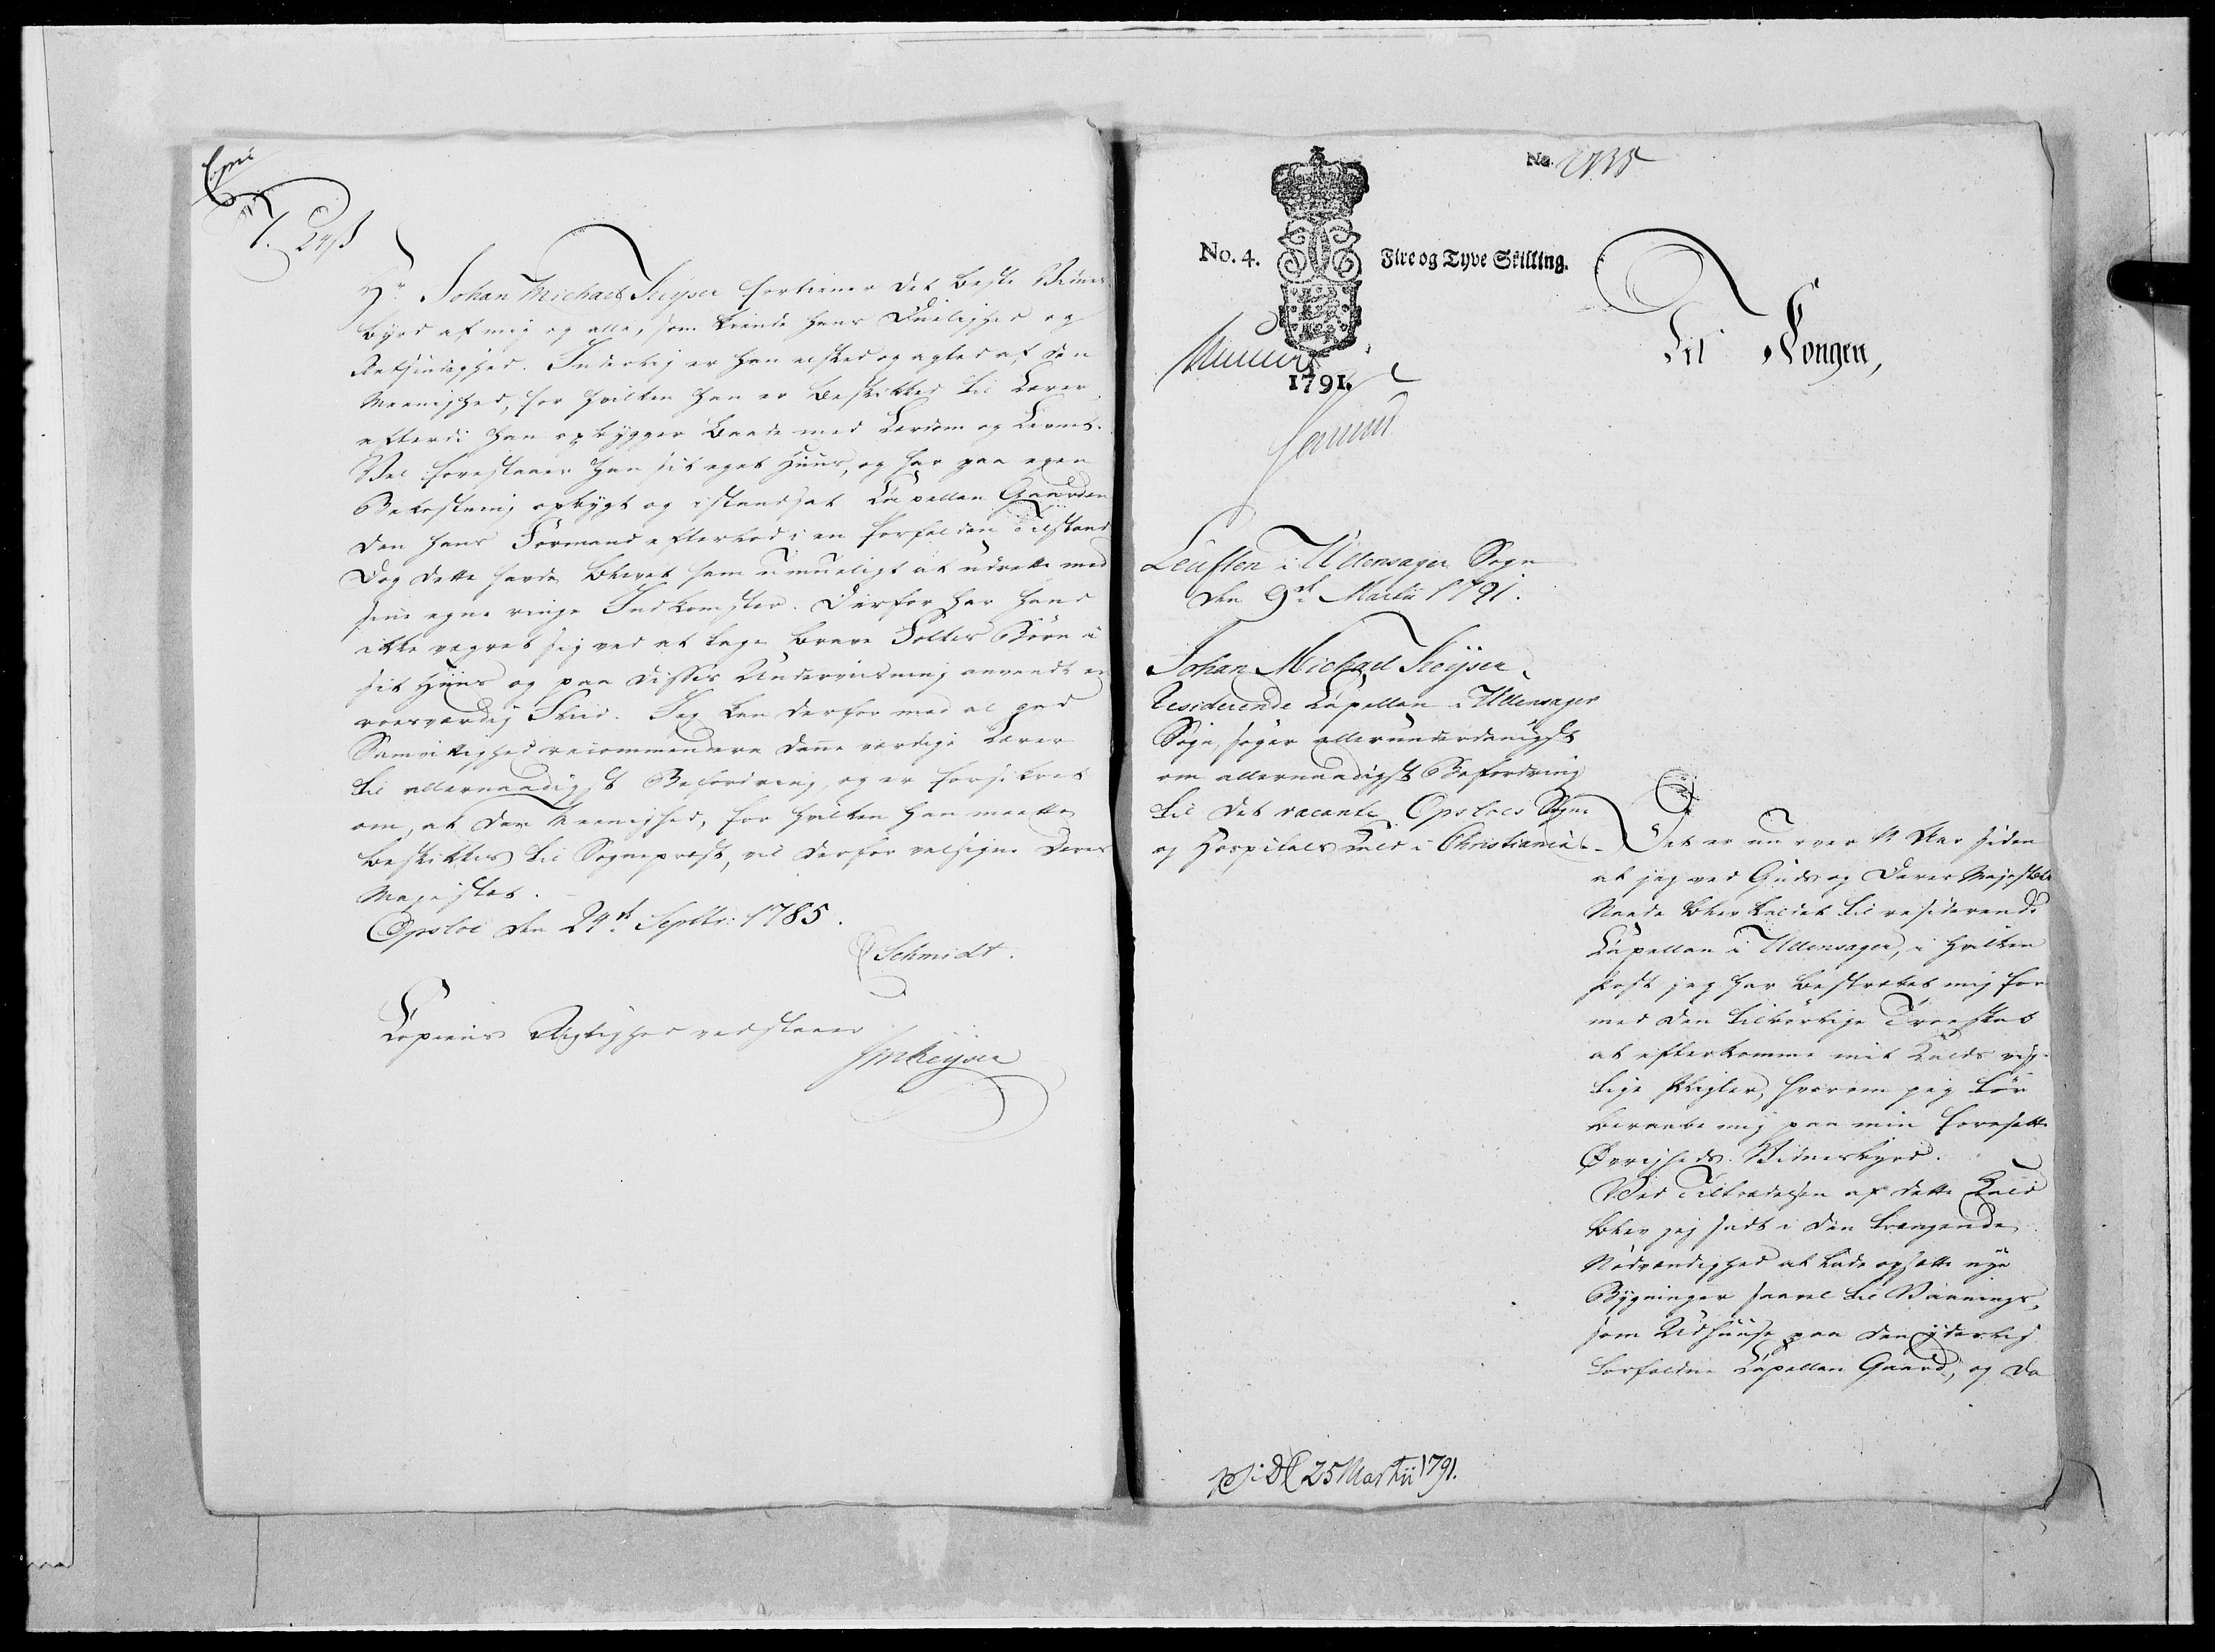 Copie
24 ß
Hr. Johan Michael Keyser fortiener det beste Vidnes-
byrd af mig og alle, som kiende hans Duelighed og
Retsindighed. Inderlig er han elsked og agted af den
Meenighed, for hvilken han er beskikked til Lærer
efterdi han opbygger baade med Lærdom og Levnet.
Vel forestaaer han sit eget Huus, og har paa egen
Bekostning opbygt og istandsat Capellan Gaarden
den hans Formand efterlod i en forfalden Tilstand
Dog dette havde blevet ham umueligt at udrette med
sine egne ringe Indkomster. Derfor har hand
ikke vegret sig ved at tage brave Folkes Børn i
sit Huus og paa disses Underviisning anvendt en
roesværdig Fliid. Jeg kan derfor med al god
Samvittighed recommendere denne værdige Lærer
til allernaadigst Befordring, og er forsikret
om, at den Meenighed, for hvilken han maatte
beskikkes til Sognepræst, vil derfor velsigne Deres
Majestæt.
Opsloe den 24de Septbr: 1785.
Schmidt.
Copiens Rigtighed vedstaaer
JMKeyser
No.
No. 4.
Fire og Tyve Skilling.
1791.
Til Kongen,
Leuften i Ullensager Sogn
den 9de Martii 1791.
Johan Michael Keyser
Residerende Capellan i Ullensager
Sogn, søger allerunderdanigst
om allernaadigst Befordring
til det vacante Opsloes Sogne
og Hospitals Kald i Christiania.
Det er nu over 11 Aar siden
at jeg ved Guds og Deres Majestæts
Naade blev kaldet til residerende
Capellan i Ullensager, i hvilken
Post jeg har bestræbet mig for
med den tilbørlige Troeskab
at efterkomme mit Kalds vig-
tige Pligter, hvorom jeg tør
beraabe mig paa min foresatte
Øvrigheds Vidnesbyrd.
Ved Tiltrædelsen af dette Kald
blev jeg sadt i den trængende
Nødvendighed at lade opsætte nye
Bygninger saavel til Vaanings,
som Udhuuse paa den yderlig
forfaldne Capellan Gaard, og da
25 Martii 1791.